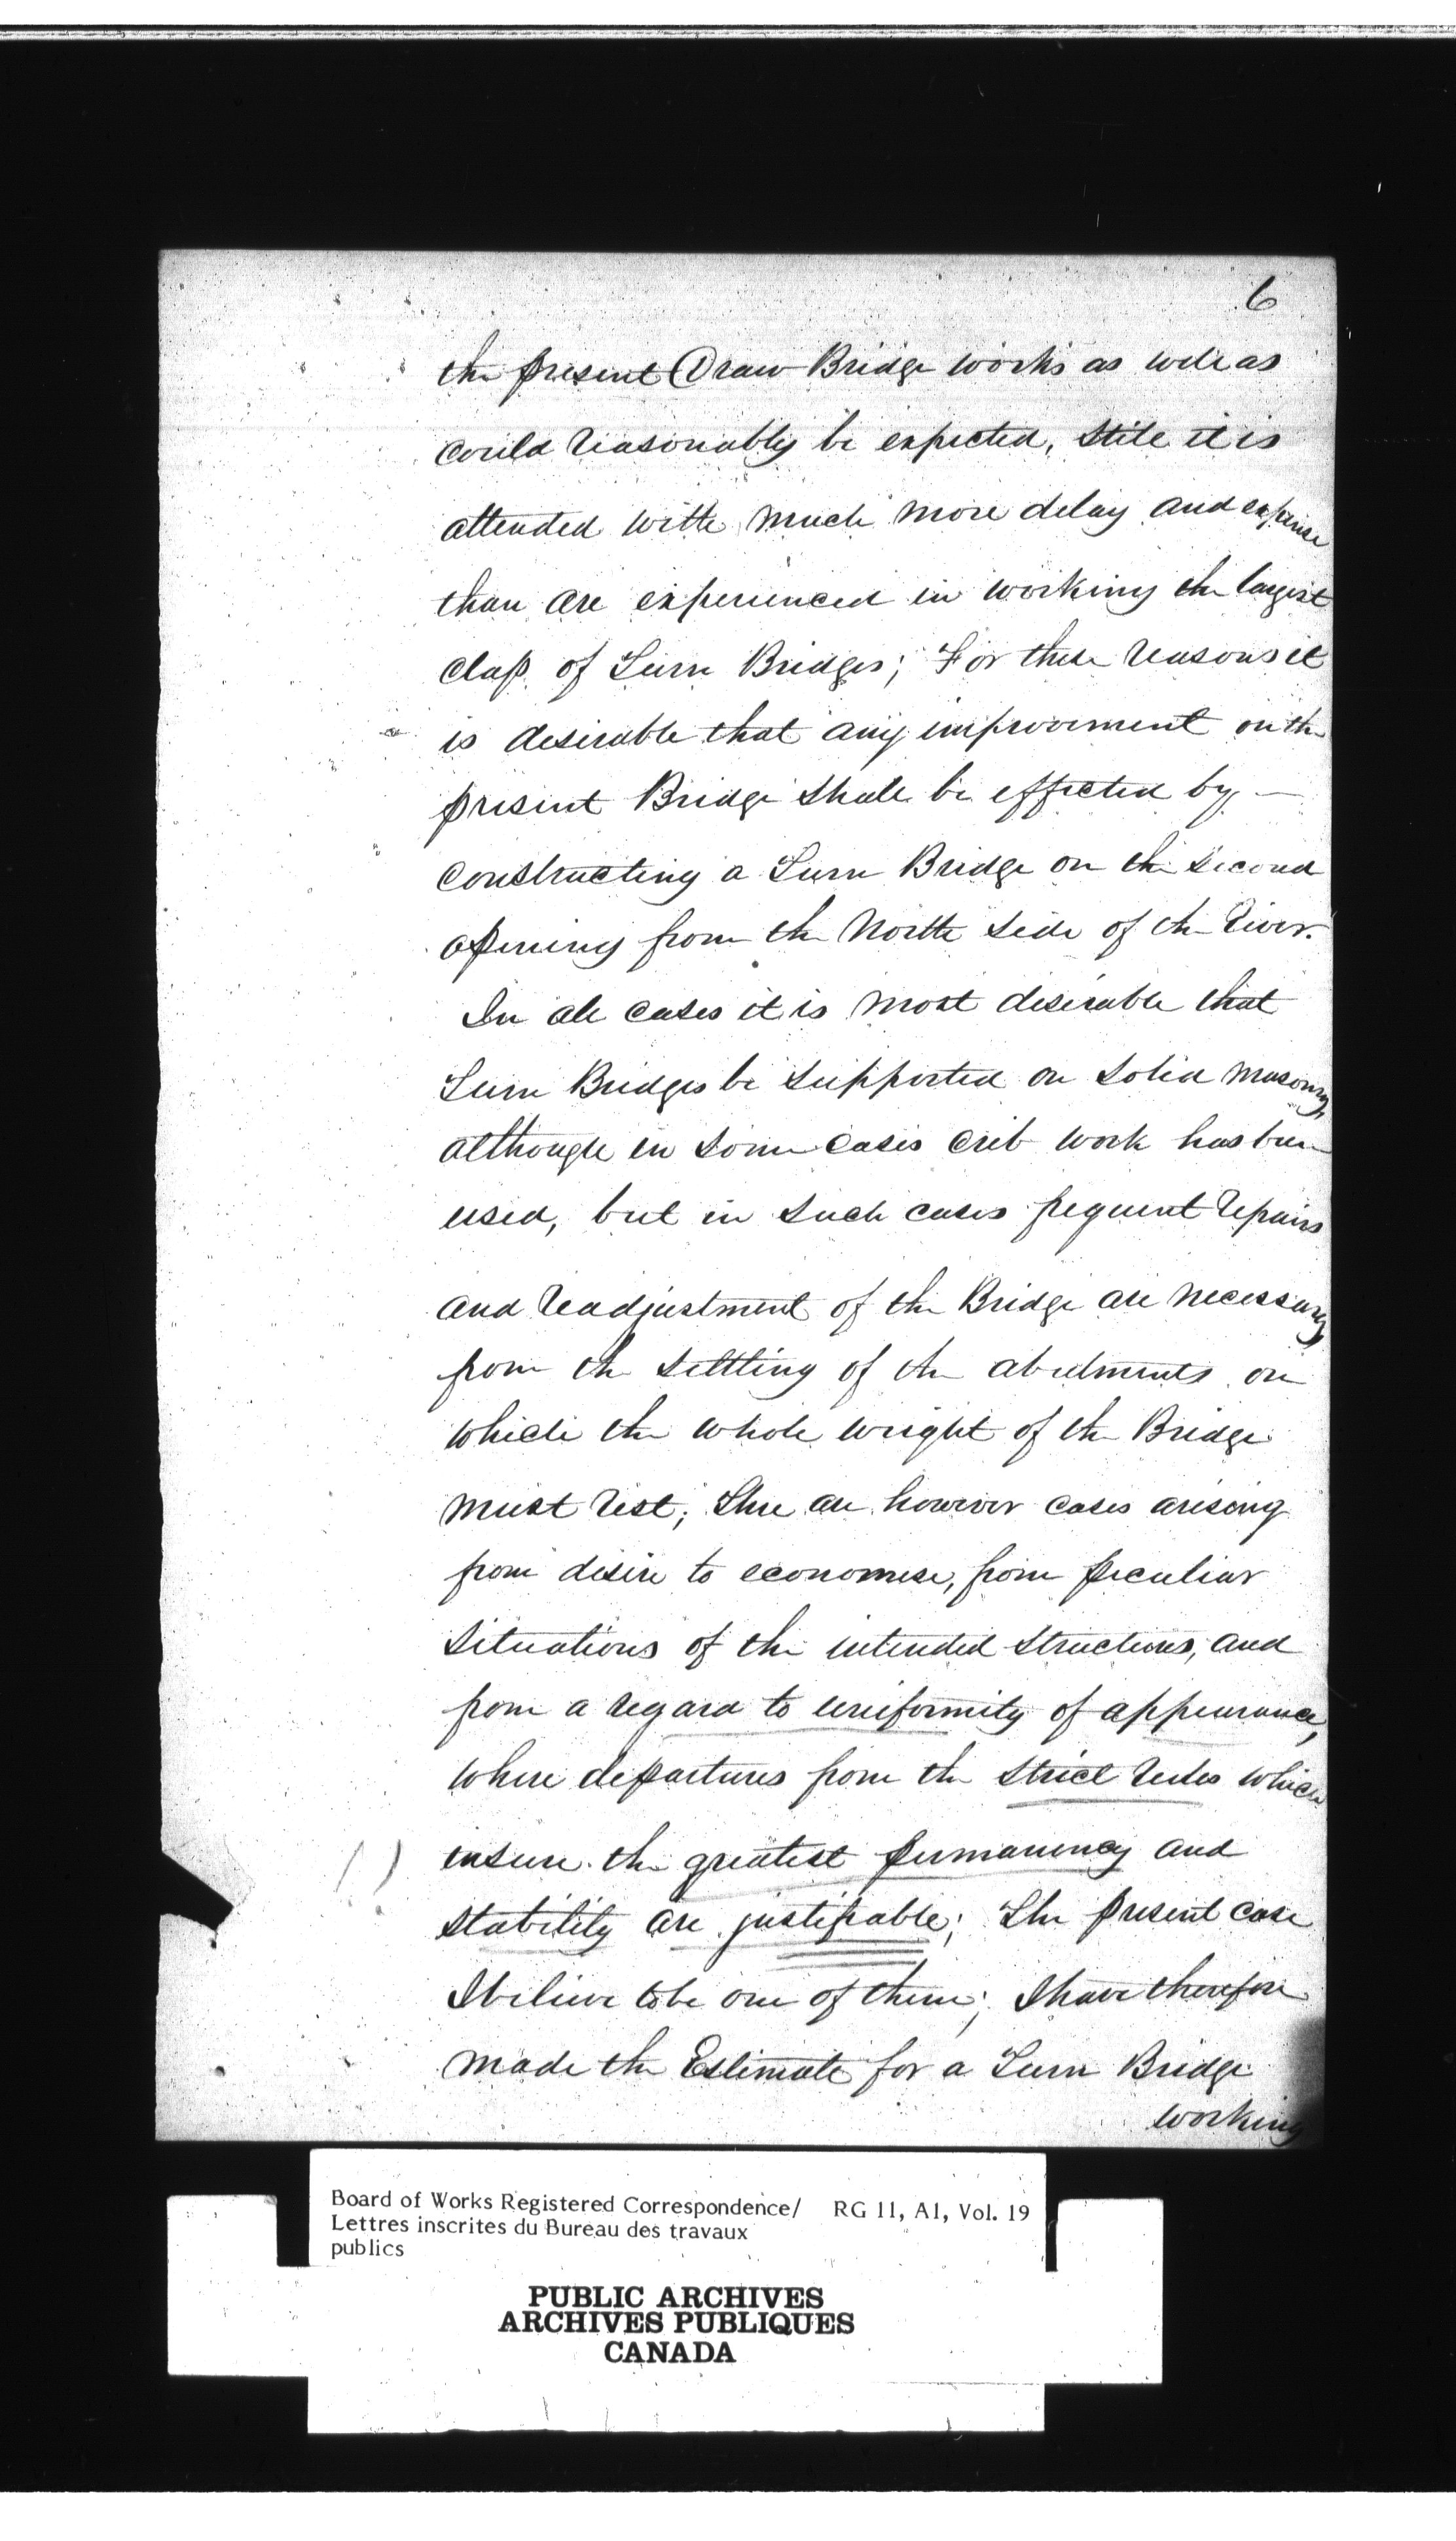 6
the present Draw Bridge works as well as
could reasonably be expected, still it is
attended with much more delay and expense
than are experienced in working the largest
class of Turn Bridges; For these reasons it
is desirable that any improvement on the
present Bridge shall be effected by —
constructing a Turn Bridge on the second
opening from the North side of the River.
In all cases it is most desirable that
Turn Bridges be supported on solid masonry,
although in some cases crib work has been
used, but in such cases frequent repairs
and readjustment of the Bridge are necessary,
from the settling of the abutments on
which the whole weight of the Bridge
must rest; There are however cases arising
from desire to economise, from peculiar
situations of the intended structures, and
from a regard to uniformity of appearance,
where departures from the strict rules which
ensure the greatest permanency and
stability are justifiable; The present case
I believe to be one of them; I have therefore
made the Estimate for a Turn Bridge
working
Board of Works Registered Correspondence/ RG 11, A1, Vol. 19
Lettres inscrites du Bureau des travaux
publics
PUBLIC ARCHIVES
ARCHIVES PUBLIQUES
CANADA